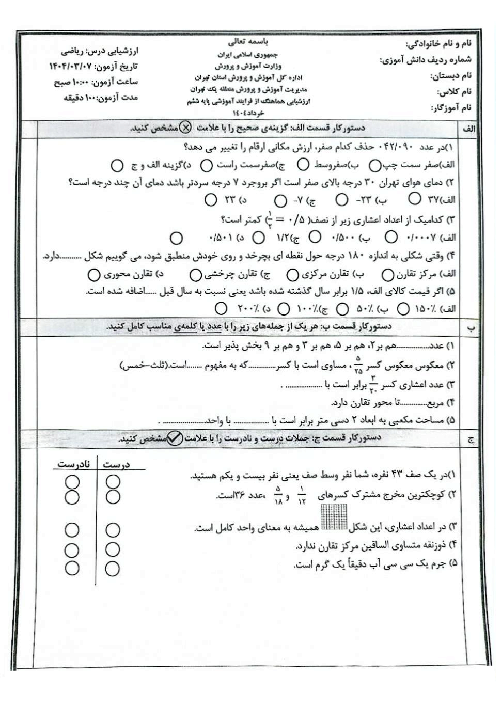 باسمه تعالی
جمهوری اسلامی ایران
وزارت آموزش و پرورش
اداره کل آموزش و پرورش استان تهران
مدیریت آموزش و پرورش منطقه یک تهران
ارزشیابی هماهنگ از فرایند آموزشی پایه ششم
خرداد ۱۴۰۴
نام و نام خانوادگی:
شماره ردیف دانش آموزی:
نام دبستان:
نام کلاس:
نام آموزگار:
ارزشیابی درس: ریاضی
تاریخ آزمون: ۱۴۰۴/۰۳/۰۷
ساعت آزمون: ۱۰:۰۰ صبح
مدت آزمون: ۱۰۰ دقیقه
الف
دستورکار قسمت الف: گزینه‌ی صحیح را با علامت ⊗ مشخص کنید.
۱)در عدد ۰۴۲/۰۹۰ حذف کدام صفر، ارزش مکانی ارقام را تغییر می دهد؟
الف)صفر سمت چپ ب)صفروسط ج)صفرسمت راست د)گزینه الف و ج
۲) دمای هوای تهران ۳۰ درجه بالای صفر است اگر بروجرد ۷ درجه سردتر باشد دمای آن چند درجه است؟
الف) ۳۷ ب) ۲۳- ج) ۷- د) ۲۳
۳) کدامیک از اعداد اعشاری زیر از نصف( ۰/۵ = ۱/۲ ) کمتر است؟
الف) ۰/۰۰۰۷ ب) ۰/۵۰۰ ج)۱/۲ د) ۰/۵۰۱
۴) وقتی شکلی به اندازه ۱۸۰ درجه حول نقطه ای بچرخد و روی خودش منطبق شود، می گوییم شکل .........دارد.
الف) مرکز تقارن ب) تقارن مرکزی ج) تقارن چرخشی د) تقارن محوری
۵) اگر قیمت کالای الف، ۱/۵ برابر سال گذشته شده باشد یعنی نسبت به سال قبل ......اضافه شده است.
الف) ۱۵۰٪ ب) ۵۰٪ ج)۱۰۰٪ د) ۲۰۰٪
ب
دستورکار قسمت ب: هر یک از جمله‌های زیر را با عدد یا کلمه‌ی مناسب کامل کنید.
۱) عدد...............هم بر ۲، هم بر ۵، هم بر ۳ و هم بر ۹ بخش پذیر است.
۲) معکوس معکوس کسر ۵/۲۵ ، مساوی است با کسر..........که به مفهوم ........است.(ثلث-خمس)
۳) عدد اعشاری کسر ۳/۲۰ برابر است با ................ .
۴) مربع...........تا محور تقارن دارد.
۵) مساحت مکعبی به ابعاد ۲ دسی متر برابر است با .............. با واحد.................... .
ج
دستورکار قسمت ج: جملات درست و نادرست را با علامت ✓ مشخص کنید.
درست نادرست
۱)در یک صف ۴۳ نفره، شما نفر وسط صف یعنی نفر بیست و یکم هستید.
۲) کوچکترین مخرج مشترک کسرهای ۱/۱۲ و ۵/۱۸ ،عدد ۳۶است.
۳) در اعداد اعشاری، این شکل همیشه به معنای واحد کامل است.
۴) ذوزنقه متساوی الساقین مرکز تقارن ندارد.
۵) جرم یک سی سی آب دقیقاً یک گرم است.